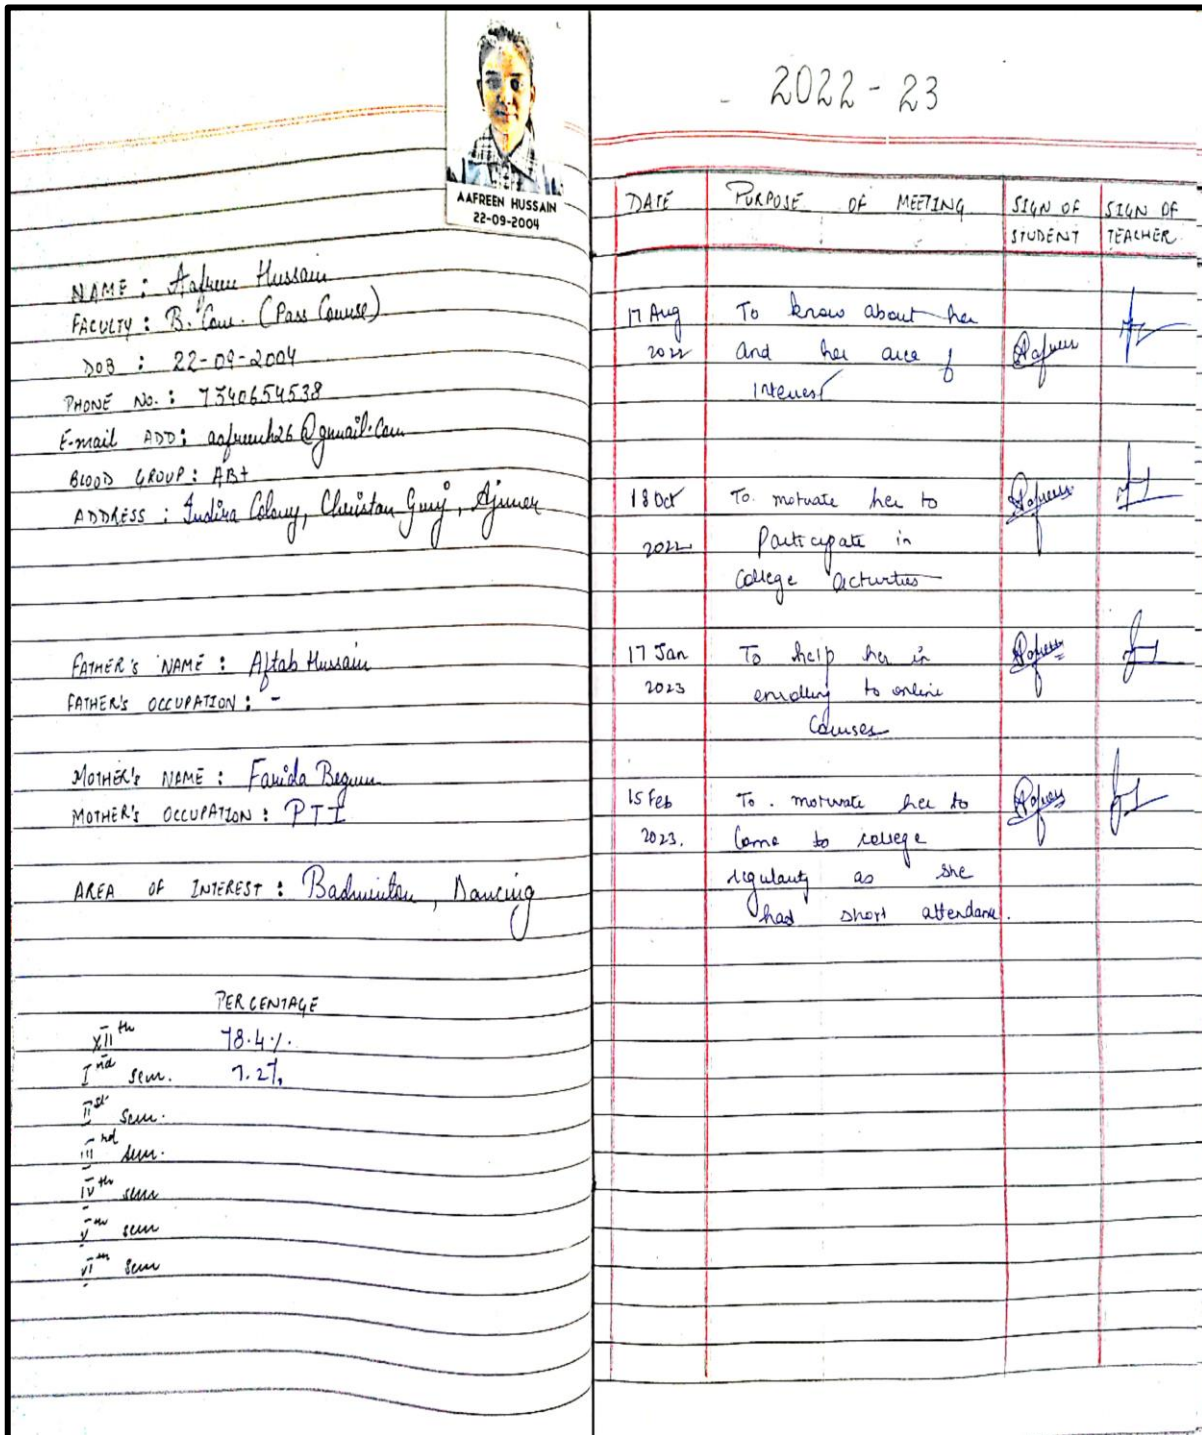 AAFREEN HUSSAIN
22-09-2004
NAME : Aafreen Hussain
FACULTY : B. Com. (Pass Course)
DOB : 22-09-2004
PHONE NO. : 7340654538
E-mail ADD : aafreenh26@gmail.com
BLOOD GROUP : AB+
ADDRESS : Indira Colony, Christan Gunj, Ajmer
FATHER'S NAME : Aftab Hussain
FATHER'S OCCUPATION : -
MOTHER'S NAME : Farida Begum
MOTHER'S OCCUPATION : PTI
AREA OF INTEREST : Badminton, Dancing
PERCENTAGE
XIIth 78.4%
Ind sem. 7.2%
IIst sem.
IIIrd sem.
IVth sem
Vth sem
VIth sem
2022-23
DATE PURPOSE OF MEETING SIGN OF STUDENT SIGN OF TEACHER
17 Aug To know about her
2022 and her area of Aafreen
Interest
18 Oct To motivate her to Aafreen
2022 Participate in
College activities
17 Jan To help her in Aafreen
2023 enrolling to online
Courses
15 Feb To. motivate her to Aafreen
2023. Come to college
regularly as she
had short attendance.